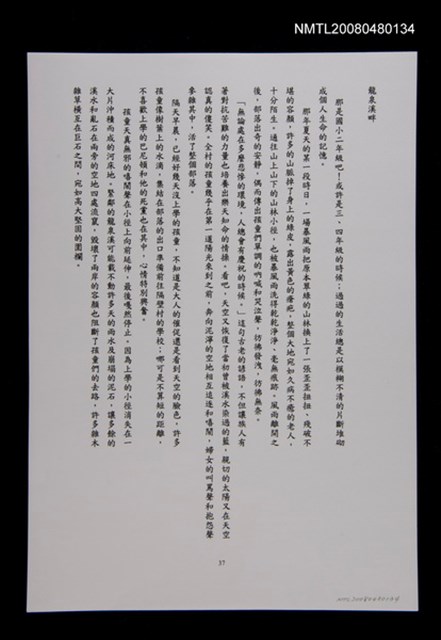 NMTL20080480134
龍泉溪畔
那是國小二年級吧！或許是三、四年級的時候；過過的生活總是以模糊不清的片斷堆砌
成個人生命的記憶。
那年夏天的某一段時日，一場暴風雨把原本翠綠的山林換上了一張歪歪扭扭、殘破不
堪的容顏，許多的山脈掉了身上的綠皮，露出黃色的瘡疤，整個大地宛如久病不癒的老人，
十分陌生。通往山上山下的山林小徑，也被暴風雨洗得乾乾淨淨、毫無痕跡。風雨離開之
後，部落出奇的安靜，偶而傳出孩童們單調的吶喊和哭泣聲，彷彿發洩，彷彿無奈。
「無論處在多麼悲慘的環境，人總會有慶祝的時候。」這句古老的諺語，不但讓族人有
著對抗苦難的力量也培養出樂天知命的情操。看吧，天空又恢復了當初曾被溪水染過的藍，親切的太陽又在天空
認真的傻笑。全村的孩童幾乎在第一道陽光來到之前，奔向泥濘的空地相互追逐和嘻鬧，婦女的叫罵聲和抱怨聲
參雜其中，活了整個部落。
隔天早晨，已經好幾天沒上學的孩童，不知道是大人的催促還是看到天空的臉色，許多
孩童像樹葉上的水滴，集結在部落的出口準備前往隔壁村的學校；哪可是不算短的距離，
不喜歡上學的巴尼頓和他的死黨也在其中，心情特別興奮。
孩童天真無邪的嘻鬧聲在小徑上向前延伸，最後嘎然停止。因為上學的小徑消失在一
大片沖積而成的河床地，緊鄰的龍泉溪可能載不動許多天的雨水及崩塌的泥石，讓多餘的
溪水和亂石在兩旁的空地四處流竄，毀壞了兩岸的容顏也阻斷了孩童們的去路，許多雜木
雜草橫亙在巨石之間，宛如高大堅固的圍欄。
37
NMTL20080480134